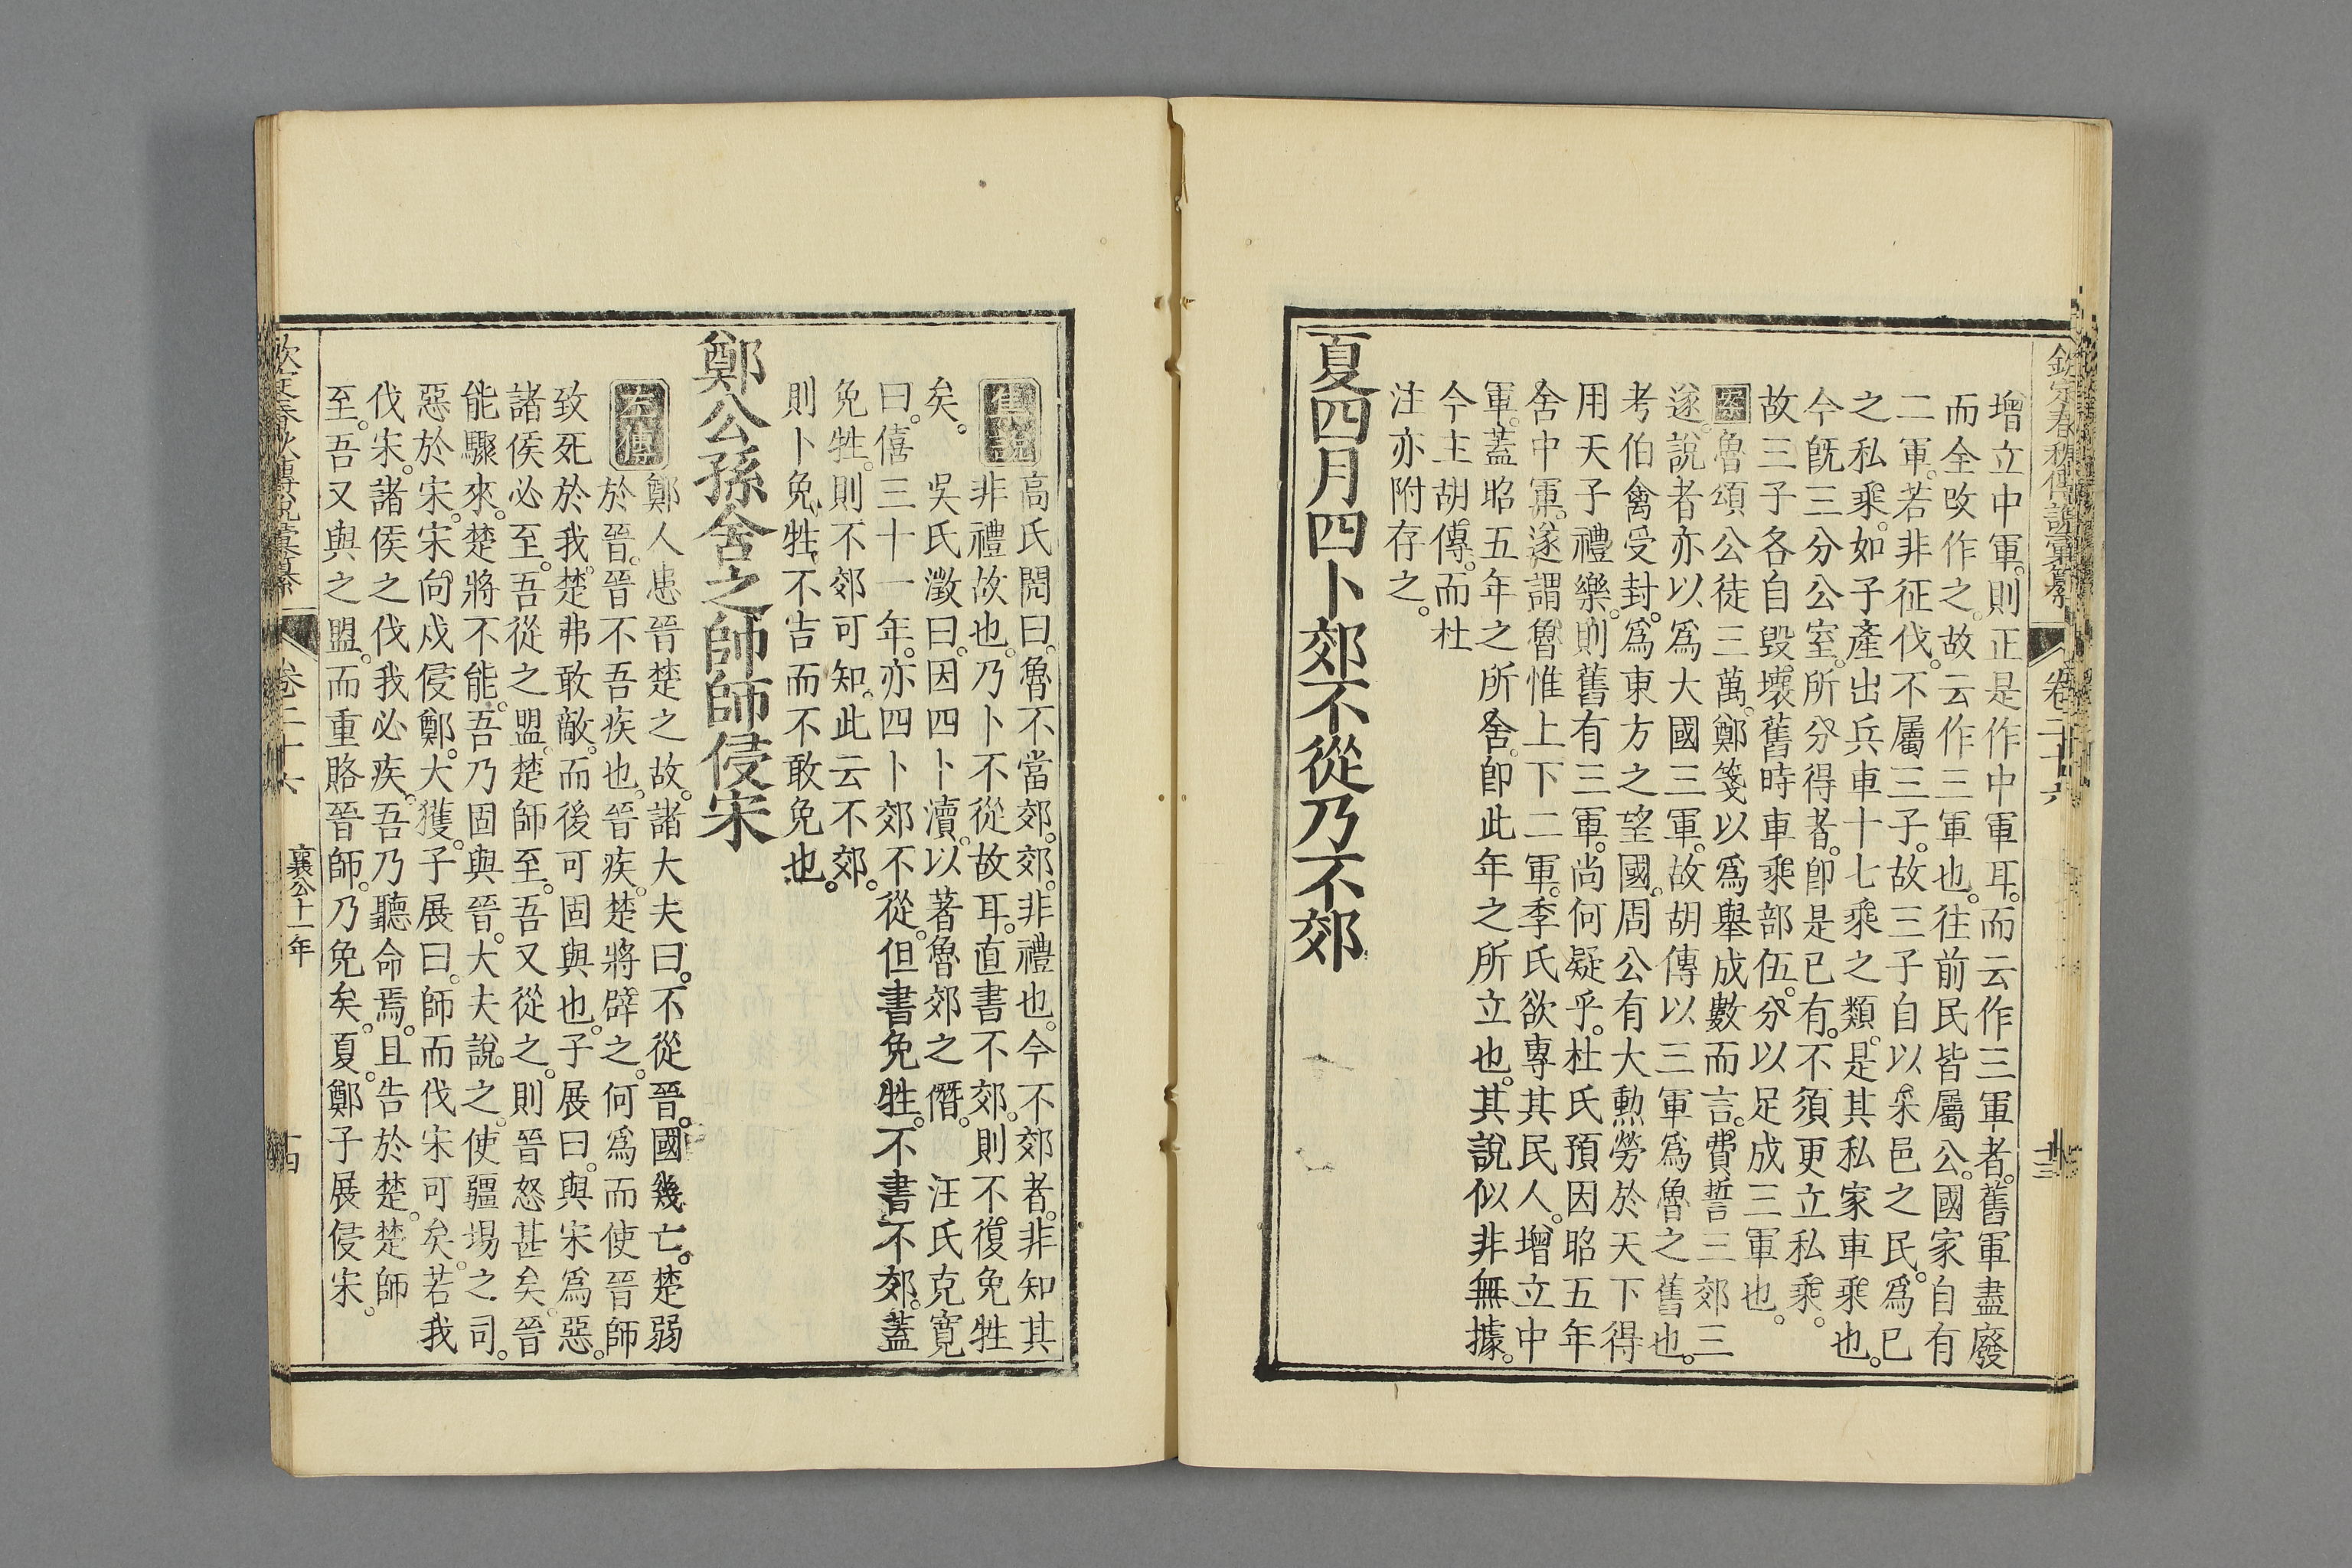 欽定春秋傳說彙纂 卷二十六 十三
增立中軍。則正是作中軍耳。而云作三軍者。舊軍盡廢
而全改作之。故云作三軍也。往前民皆屬公。國家自有
二軍。若非征伐。不屬三子。故三子自以采邑之民。爲已
之私乘。如子產出兵車十七乘之類。是其私家車乘也。
今旣三分公室。所分得者。卽是已有。不須更立私乘。
故三子各自毀壞舊時車乘部伍。分以足成三軍也。
案魯頌公徒三萬。鄭箋以爲舉成數而言。費誓三郊三
遂。說者亦以爲大國三軍。故胡傳以三軍爲魯之舊也。
考伯禽受封。爲東方之望國。周公有大勳勞於天下得
用天子禮樂。則舊有三軍。尚何疑乎。杜氏預因昭五年
舍中軍。遂謂魯惟上下二軍。季氏欲專其民人。增立中
軍。蓋昭五年之所舍。卽此年之所立也。其說似非無據。
今主胡傳。而杜
注亦附存之。
夏四月四卜郊不從乃不郊
集說 高氏閌曰。魯不當郊。郊。非禮也。今不郊者。非知其
非禮故也。乃卜不從故耳。直書不郊。則不復免牲
矣。 吳氏澂曰。因四卜瀆。以著魯郊之僭。 汪氏克寬
曰。僖三十一年。亦四卜郊不從。但書免牲。不書不郊。蓋
免牲。則不郊可知。此云不郊。
則卜免牲不吉而不敢免也。
鄭公孫舍之帥師侵宋
左傳 鄭人患晉楚之故。諸大夫曰。不從晉。國幾亡。楚弱
於晉。晉不吾疾也。晉疾。楚將辟之。何爲而使晉師
致死於我。楚弗敢敵。而後可固與也。子展曰。與宋爲惡。
諸侯必至。吾從之盟。楚師至。吾又從之。則晉怒甚矣。晉
能驟來。楚將不能。吾乃固與晉。大夫說之。使疆場之司。
惡於宋。宋向戌侵鄭。大獲。子展曰。師而伐宋可矣。若我
伐宋。諸侯之伐我必疾。吾乃聽命焉。且告於楚。楚師
至。吾又與之盟。而重賂晉師。乃免矣。夏。鄭子展侵宋。
欽定春秋傳說彙纂 卷二十六 襄公十一年 十四